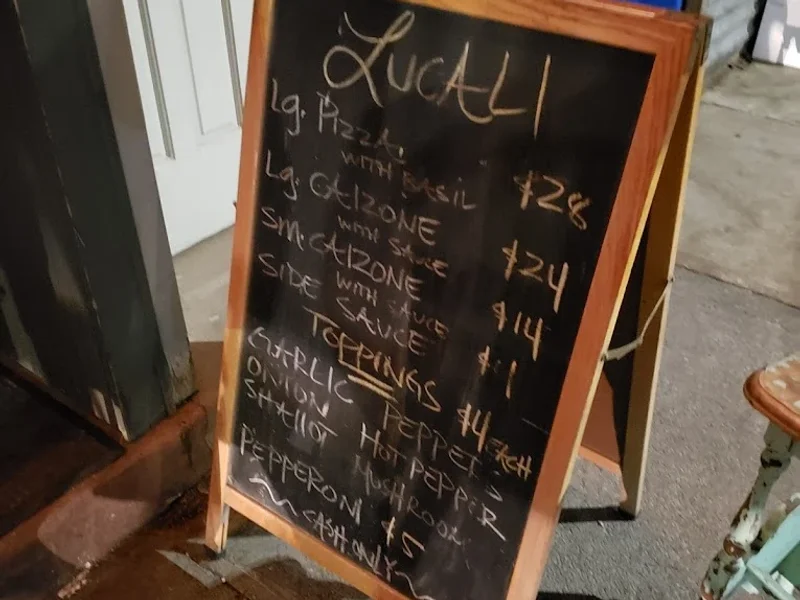 LUCALI
Lg. PIZZA
WITH BASIL $28
Lg. CALZONE
WITH SAUCE $24
SM. CALZONE
WITH SAUCE $14
SIDE SAUCE $1
TOPPINGS $4 EACH
GARLIC PEPPERS
ONION HOT PEPPER
SHALLOT MUSHROOM
PEPPERONI $5
~ CASH ONLY ~